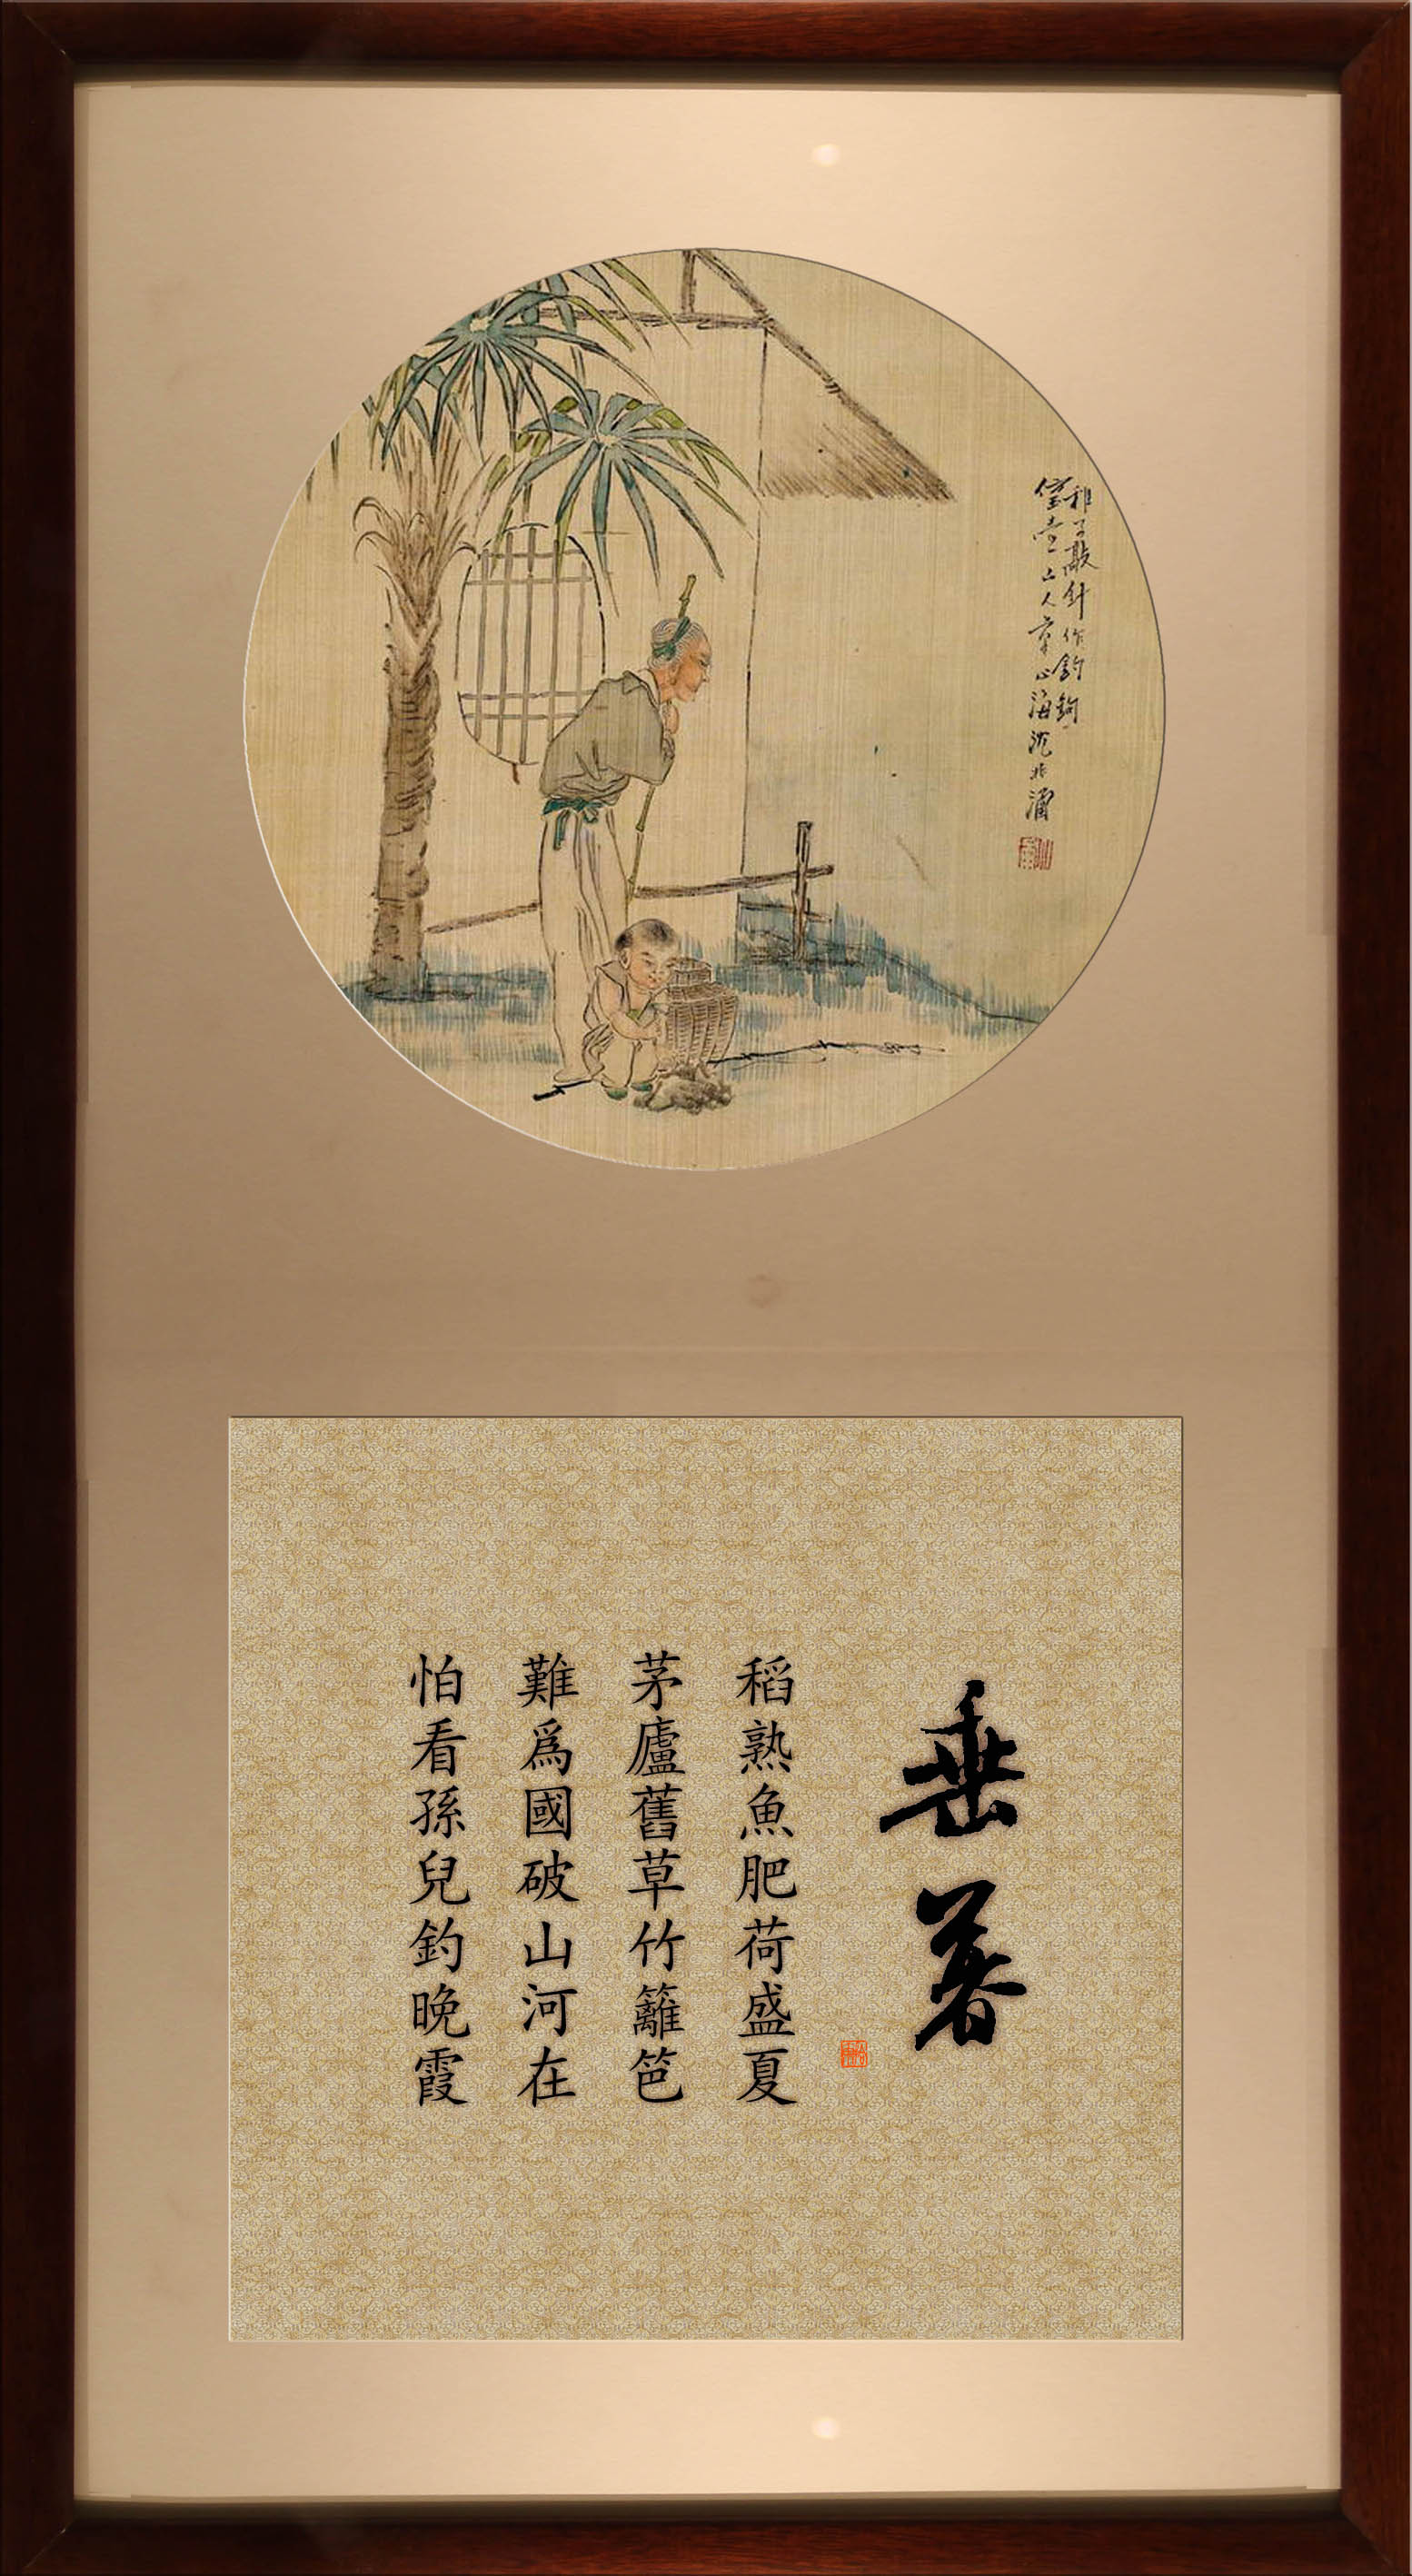 稚子敲針作釣鉤
壺山人上海沈兆涵
垂暮
稻熟魚肥荷盛夏
茅廬舊草竹籬笆
難爲國破山河在
怕看孫兒釣晚霞